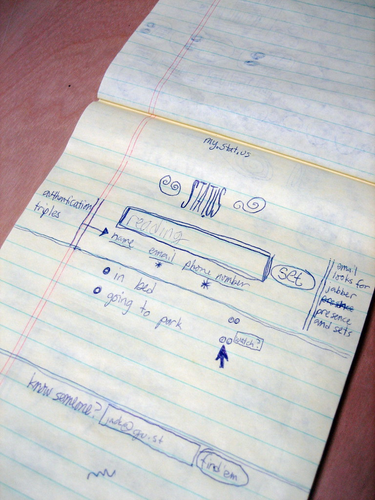 my.stat.us
STATUS
authentication
triples
reading
name email phone number
* *
set
email
looks for
jabber
presence
and sets
in bed
going to park
watch?
know someone?
find'em